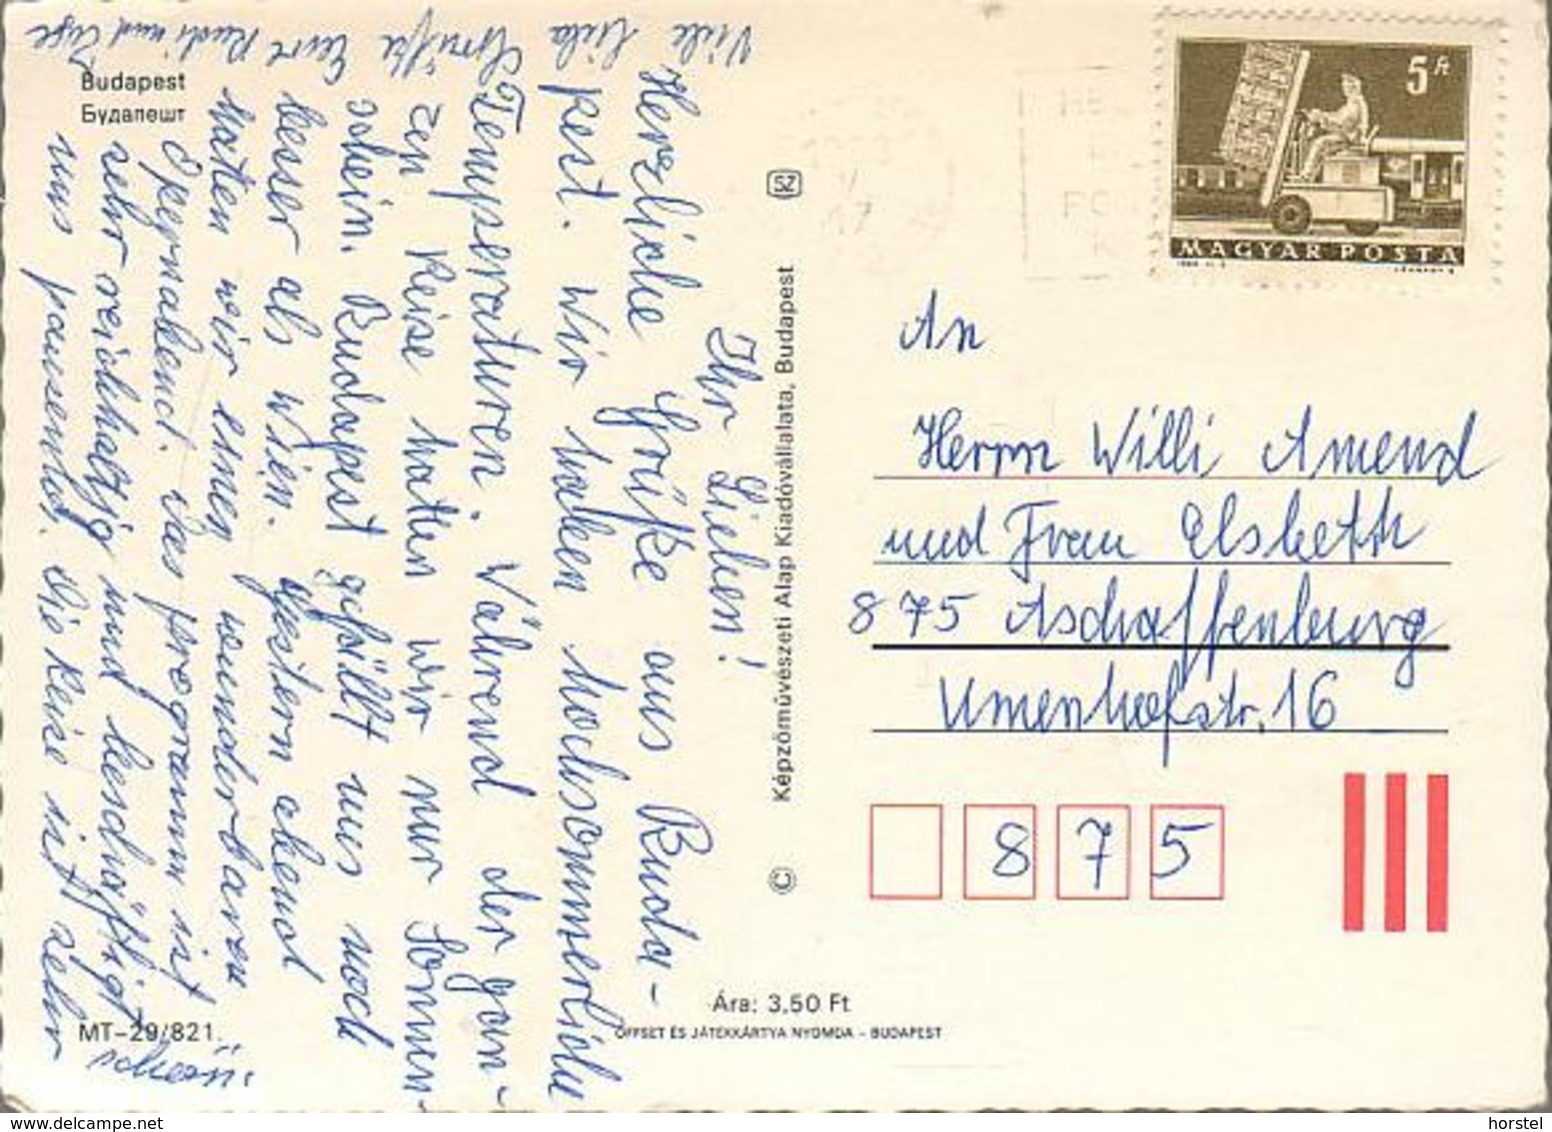 Budapest
Будапешт
Ihr Lieben!
Herzliche Grüße aus Buda-
pest. Wir haben hochsommerliche
Temperaturen. Während der gan-
zen Reise hatten wir nur Sonnen-
schein. Budapest gefällt uns noch
besser als Wien. Gestern abend
hatten wir einen wunderbaren
Opernabend. Das Programm ist
sehr reichhaltig und beschäftigt
uns pausenlos. Die Reise ist sehr
schön.
Viele liebe Grüße Eure Rudi und
MT–29/821.
Képzőművészeti Alap Kiadóvállalata, Budapest
©
SZ
Ára: 3,50 Ft
OFFSET ÉS JÁTÉKKÁRTYA NYOMDA – BUDAPEST
5 Ft
MAGYAR POSTA
An
Herrn Willi Amend
und Frau Elsbeth
875 Aschaffenburg
Umenhofstr. 16
875
www.delcampe.net
horstel